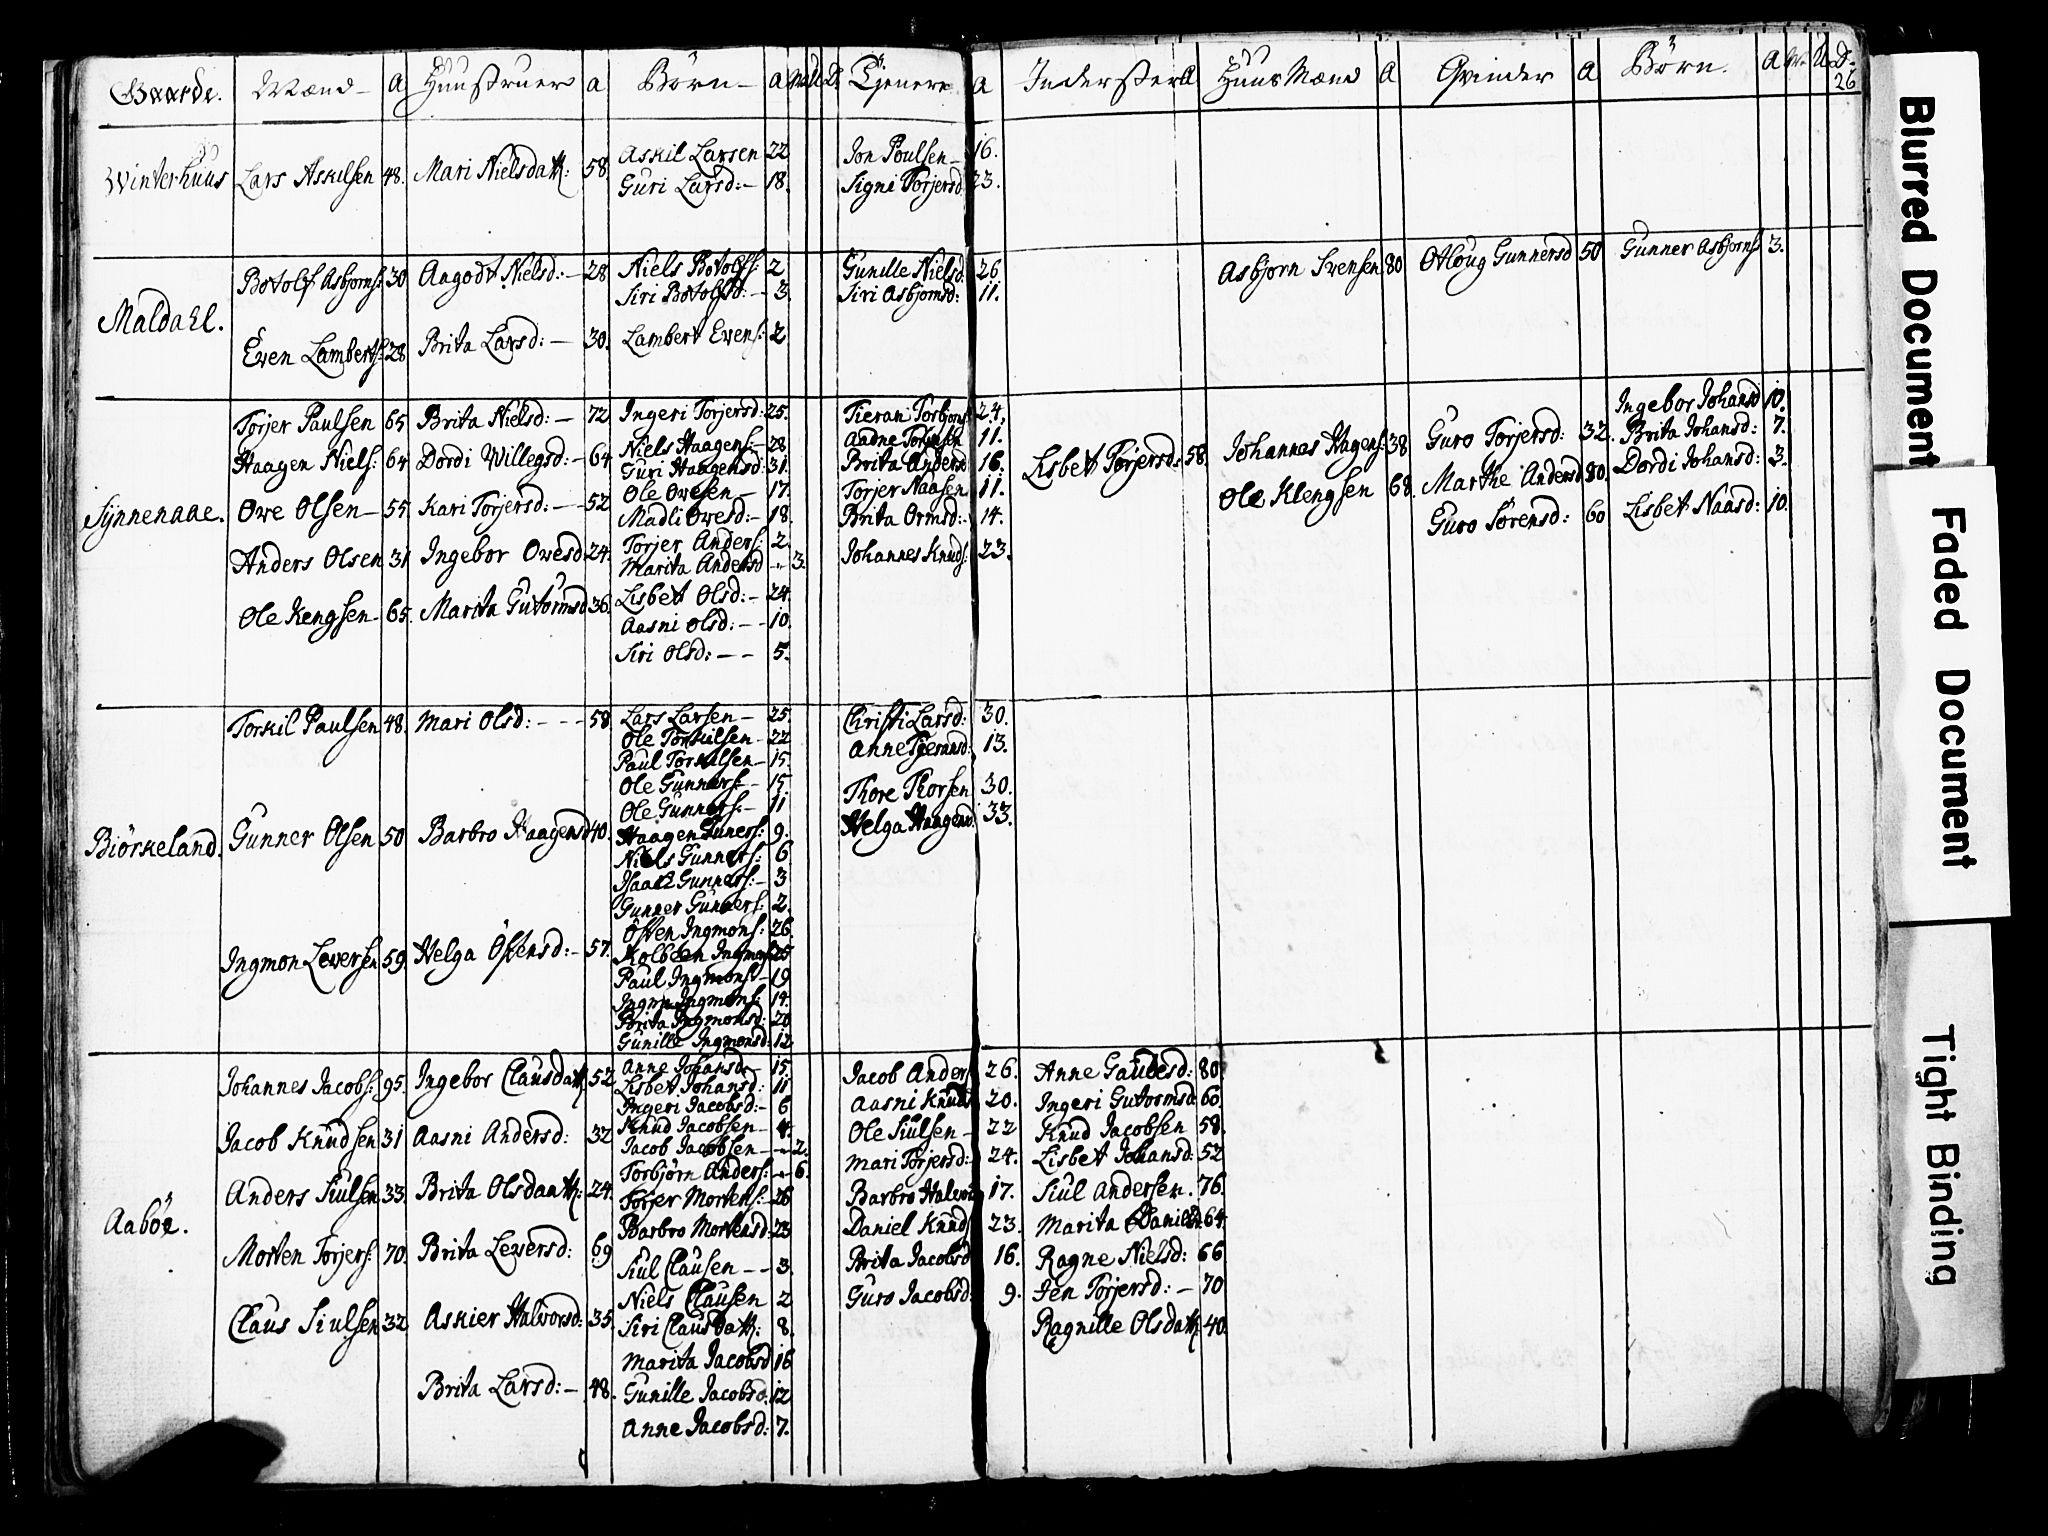 Gaarde. Mænd - A Huustruer A Börn - A M U D. Tjenere A Inderster A HuusMænd A Qvinder A Börn. A M. U D.
26
Winterhuus Lars Askilsen 48. Mari Nielsdatt: 58. Askil Larsen 22 Jon Poulsen - 16.
Guri Larsd: - 18. Signi Torjersd 23.
Maldahl. Botolf Asbjorns: 30 Aagodt Nielsd: - 28 Niels Botolfs: 2 Gunille Nielsd 26 Asbjorn Svensen 80 Otloug Gunnersd 50 Gunner Asbjorns 3.
Siri Botolfsd: - 3. Siri Asbjornsd: 11.
Even Lamberts: 28 Brita Larsd: - 30. Lambert Evens: 2
Synnenaae. Torjer Paulsen 65 Brita Nielsd: - 72 Ingeri Torjersd: 25. Tieran Torbjons 24. Lisbet Torjersd: 58. Johannes Hagens: 38 Guro Torjersd: 32. Ingebor Johansd 10.
Haagen Niels: 64 Dordi Willegsd: - 64 Niels Haagens: - 28 Aadne 11. Brita Johansd: 7.
Guri Haagensd: 31. Brita Andersd 16. Ole Klengsen 68. Marthe Andersd 80. Dordi Johansd: 3.
Owe Olsen - 55. Kari Torjersd: - 52 Ole Owesen - 17. Torjer Naasen 11. Guro Sörensd: 60 Lisbet Naasd: 10.
Madli Owesd: - 18. Brita Ormsd: - 14.
Anders Olsen 31 Ingebor Owesd 24. Torjer Anders: 2. Johannes Knuds: 23.
Marita Andersd - 3.
Ole Kengsen - 65. Marita Gutormsd 36. Lisbet Olsd: - 24.
Aasni Olsd: - - 10.
Siri Olsd: - - 5.
Biörkeland. Torkil Paulsen 48. Mari Olsd: - - - 58 Lars Larsen - 25. Christi Larsd: 30.
Ole Torkilsen - 22 Anne Tjeransd: 13.
Paul Torkilsen - 15.
Ole Gunners: - 15. Thore Thorsen 30.
Gunner Olsen 50 Barbro Haagensd 40. Ole Gunners: - 11 Helga Haagensd. 33.
Haagen Guners: 9.
Niels Gunners: 6
Isaach Gunners: - 3
Gunner Gunners: 2.
Ingmon Leversen 59. Helga Östensd: - 57. Östen Ingmons: 26
Kolbeen Ingmons 25
Paul Ingmons - 19
Ingmons: 14.
Brita Ingmonsd: 20
Gunille Ingmonsd: 12
Aaböe. Johannes Jacobs: 95. Ingebor Clausdatt. 52 Anne Johansd - 15. Jacob Anders 26. Anne Gaudesd: 80
Lisbet Johansd: 11 Aasni Knuds 20. Ingeri Gutormsd 60.
Jacob Knudsen 31 Aasni Andersd: 32 Ingeri Jacobsd: - 6 Ole Siulsen - 22 Knud Jacobsen 58.
Knud Jacobsen - 4. Mari Torjersd: - 24. Lisbet Johansd: 52
Jacob Jacobsen - - 2.
Anders Siulsen 33. Brita Olsdaatt: 24. Torbjörn Anders: - 6. Barbro Halvors 17. Siul Andersen. 76.
Torjer Mortens: - 26 Daniel Knuds 23. Marita 64.
Morten Torjers: 70. Brita Leversd: 69 Barbro Mortensd: 23 Brita Jacobsd 16. Ragne Nielsd: 66
Claus Siulsen 32 Askier Halvorsd: 35. Siul Clausen - - 3. Guro Jacobsd. 9. Jen Torjersd: - 70
Niels Clausen 2 Ragnille Olsdatt 40.
Siri Clausdatt: 8.
Brita Larsd: - 48. Marita Jacobsd 16
Gunille Jacobsd. 12
Anne Jacobsd: 7.
Blurred Document
Faded Document
Tight Binding